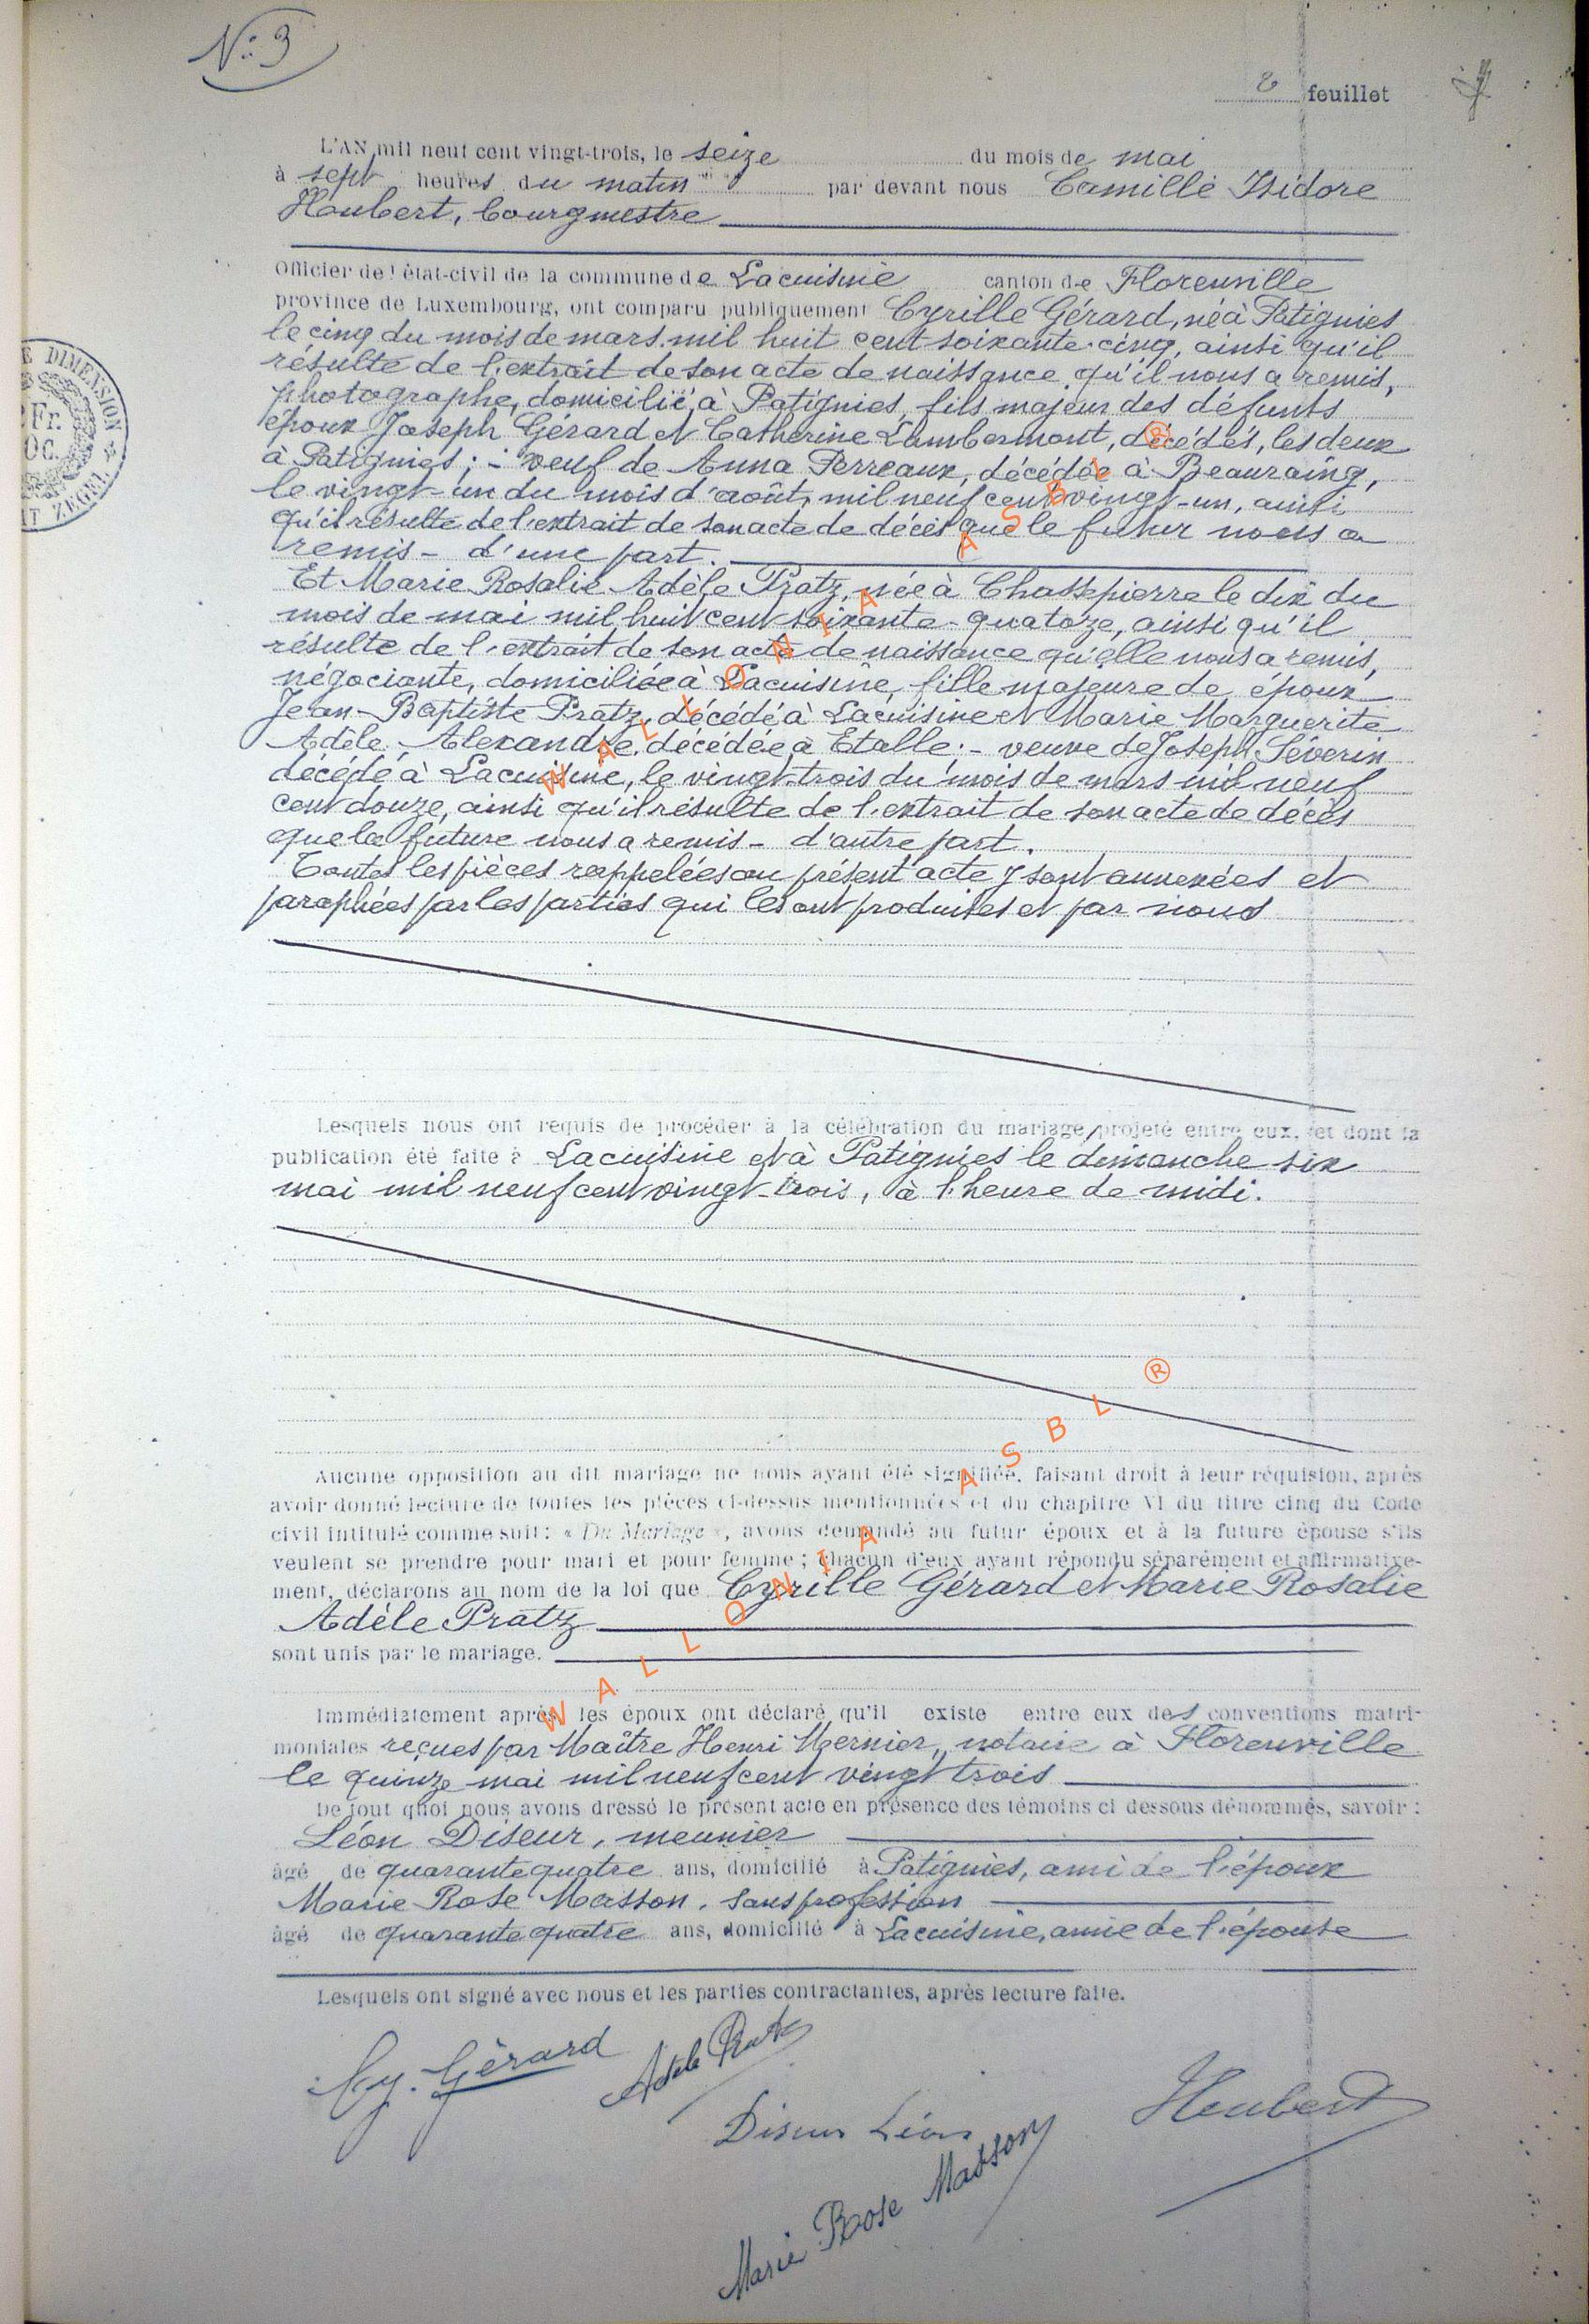 N: 3
feuillet
L'AN mil neuf cent vingt-trois, le seize du mois de mai
à sept heures du matin par devant nous Camille Isidore
Houbert, bourgmestre
Officier de l'état-civil de la commune de Lacuisine canton de Florenville
province de Luxembourg, ont comparu publiquement Cyrille Gérard, né à Patignies
le cinq du mois de mars mil huit cent soixante-cinq, ainsi qu'il
résulte de l'extrait de son acte de naissance qu'il nous a remis,
photographe, domicilié à Patignies, fils majeur des défunts
époux Joseph Gérard et Catherine Lambermont, décédés, les deux
à Patignies ; - veuf de Anna Perreaux, décédée à Beauraing,
le vingt-un du mois d'août mil neuf cent vingt-un, ainsi
qu'il résulte de l'extrait de son acte de décès que le futur nous a
remis - d'une part.
Et Marie Rosalie Adèle Pratz, née à Chassepierre le dix du
mois de mai mil huit cent soixante-quatoze, ainsi qu'il
résulte de l'extrait de son acte de naissance qu'elle nous a remis,
négociante, domiciliée à Lacuisine, fille majeure de époux
Jean-Baptiste Pratz, décédé à Lacuisine et Marie Marguerite
Adèle Alexandre, décédée à Etalle ; - veuve de Joseph Séverin
décédé à Lacuisine, le vingt-trois du mois de mars mil neuf
cent douze, ainsi qu'il résulte de l'extrait de son acte de décès
que la future nous a remis - d'autre part.
Toutes les pièces rappelées au présent acte y sont annexées et
paraphées par les parties qui les ont produites et par nous
Lesquels nous ont requis de procéder à la célébration du mariage projeté entre eux, et dont la
publication été faite à Lacuisine et à Patignies le dimanche six
mai mil neuf cent vingt-trois, à l'heure de midi.
Aucune opposition au dit mariage ne nous ayant été signifiée, faisant droit à leur réquision, après
avoir donné lecture de toutes les pièces ci-dessus mentionnées et du chapitre VI du titre cinq du Code
civil intitulé comme suit : « Du Mariage », avons demandé au futur époux et à la future épouse s'ils
veulent se prendre pour mari et pour femme ; chacun d'eux ayant répondu séparément et affirmative-
ment, déclarons au nom de la loi que Cyrille Gérard et Marie Rosalie
Adèle Pratz
sont unis par le mariage.
Immédiatement après, les époux ont déclaré qu'il existe entre eux des conventions matri-
moniales reçues par Maître Henri Mernier, notaire à Florenville
le quinze mai mil neuf cent vingt trois
De tout quoi nous avons dressé le présent acte en présence des témoins ci dessous dénommés, savoir :
Léon Diseur, meunier
âgé de quarante quatre ans, domicilié à Patignies, ami de l'époux
Marie Rose Masson, sans profession
âgé de quarante quatre ans, domicilié à Lacuisine, amie de l'épouse
Lesquels ont signé avec nous et les parties contractantes, après lecture faite.
Cy. Gérard
Adele Pratz
Diseur Léon
Houbert
Marie Rose Masson
WALLONIA ASBL ®
WALLONIA ASBL ®
E DIMENSION
Fr.
OC.
T ZEGEL